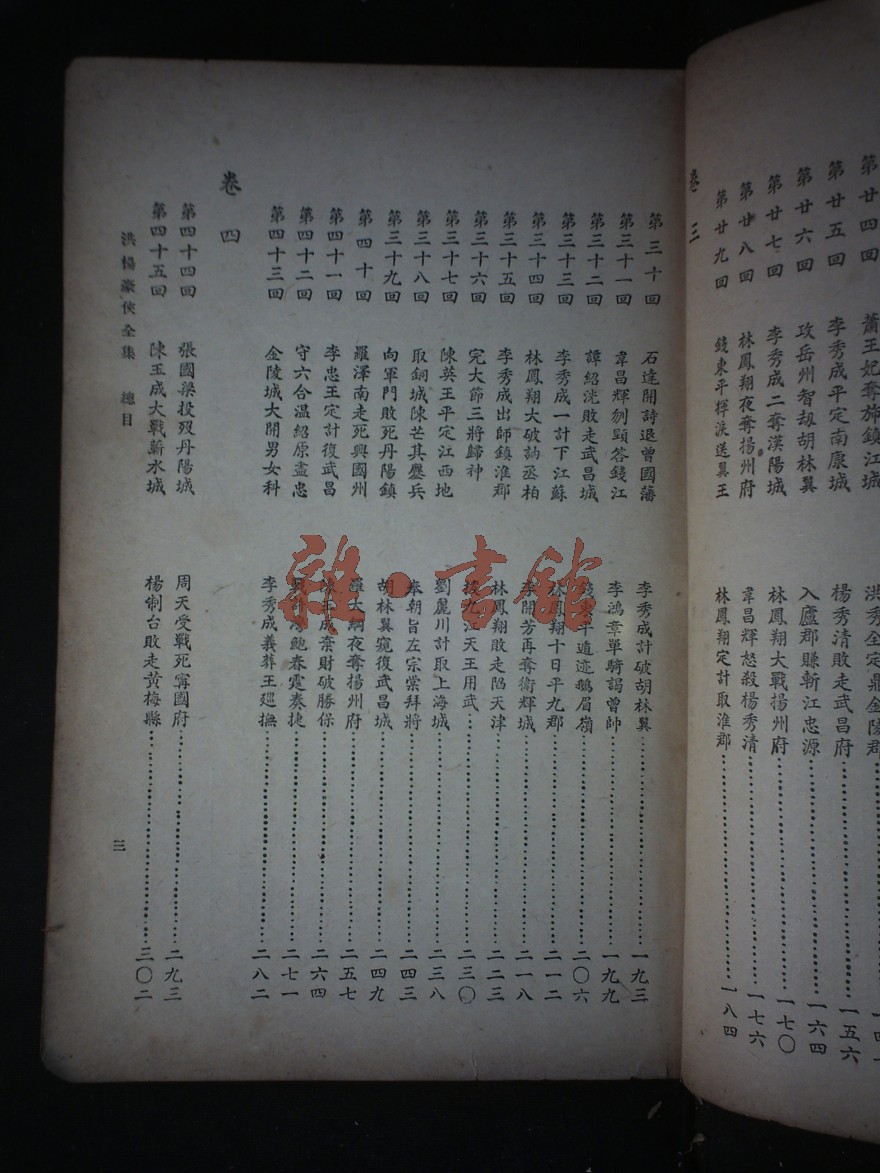 第廿四回 蕭王妃奪旅鎮江城 洪秀全定鼎金陵郡
第廿五回 李秀成平定南康城 楊秀清敗走武昌府 一五六
第廿六回 攻岳州智刼胡林翼 入廬郡賺斬江忠源 一六四
第廿七回 李秀成二奪漢陽城 林鳳翔大戰揚州府 一七〇
第廿八回 林鳳翔夜奪揚州府 韋昌輝怒殺楊秀清 一七六
第廿九回 錢東平揮淚送翼王 林鳳翔定計取淮郡 一八四
卷三
第三十回 石達開詩退曾國藩 李秀成計破胡林翼 一九三
第三十一回 韋昌輝刎頸答錢江 李鴻章單騎謁曾帥 一九九
第三十二回 譚紹洸敗走武昌城 東平遁迹鵝眉嶺 二〇六
第三十三回 李秀成一計下江蘇 林鳳翔十日平九郡 二一二
第三十四回 林鳳翔大破訥丞柏 李開芳再奪衛輝城 二一八
第三十五回 李秀成出師鎮淮郡 林鳳翔敗走陷天津 二二三
第三十六回 完大節三將歸神 九江天王用武 二三〇
第三十七回 陳英王平定江西地 劉麗川計取上海城 二三八
第三十八回 取銅城陳芒其鏖兵 奉朝旨左宗棠拜將 二四三
第三十九回 向軍門敗死丹陽鎮 胡林翼窺復武昌城 二四九
第四十回 羅澤南走死興國州 羅大綱夜奪揚州府 二五七
第四十一回 李忠王定計復武昌 玉成棄財破勝保 二六四
第四十二回 守六合温紹原盡忠 鮑春霆奏捷 二七一
第四十三回 金陵城大開男女科 李秀成義葬王廵撫 二八二
卷四
第四十四回 張國樑投歿丹陽城 周天受戰死寗國府 二九三
第四十五回 陳玉成大戰蘄水城 楊制台敗走黃梅縣 三〇二
洪楊豪俠全集 總目 三
雜·書館